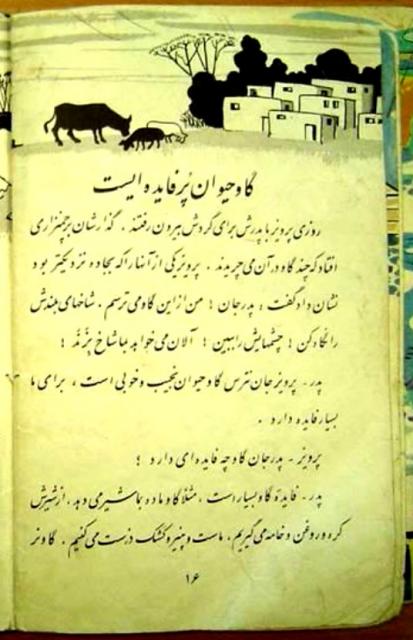 گاو حیوان پُر فایده ایست
روزی پرویز با پدرش برای گردش بیرون رفتند . گذارشان بر چمنزاری
افتاد که چند گاو در آن می‌چریدند . پرویز یکی از آنها را که بجاده نزدیکتر بود
نشان داد گفت ، پدرجان ! من از این گاو می ترسم . شاخهای بلندش
را نگاه کن ! چشمهایش را ببین ! الان می‌خواهد بما شاخ بزند !
پدر - پرویز جان نترس گاو حیوان نجیب و خوبی است ، برای ما
بسیار فایده دارد .
پرویز - پدرجان گاو چه فایده‌ای دارد ؟
پدر - فایدهٔ گاو بسیار است ، مثلا گاو ماده بما شیر می دهد ، از شیرش
کره و روغن و خامه می گیریم ، ماست و پنیر و کشک درست می کنیم . گاو نر
۱۶